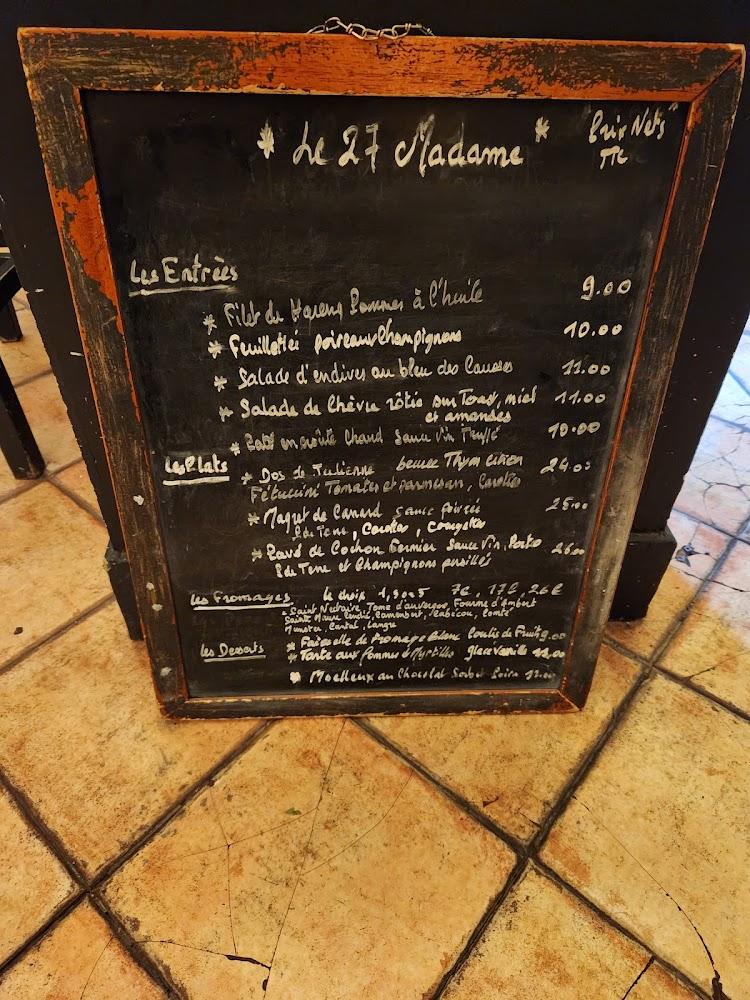 * Le 27 Madame *
Prix Nets
TTC
Les Entrées
* Filet de Hareng Pommes à l'huile 9.00
* Feuilleteé poireaux Champignons 10.00
* Salade d'endives au bleu des Causses 11.00
* Salade de Chèvre rôtie sur Toast, miel 11.00
et amandes
* Paté en croûte Chaud Sauce Vin Truffé 10.00
Les Plats
* Dos de Julienne beurre Thym Citron 24.00
Fétuccini Tomates et parmesan, Carottes
* Magret de Canard Sauce poivrée 25.00
P de Terre, Carottes, Courgettes
* Pavé de Cochon Fermier Sauce Vin, Porto 26.00
P de Terre et Champignons persillés
Les Fromages le choix 1, 3 ou 5 7€, 17€, 26€
Saint Nectaire, Tome d'auvergne, Fourme d'Ambert
Sainte Maure Cendré, Camembert, Cabécou, Comté
Munster, Cantal, Langre
Les Desserts
* Faisselle de Fromage Blanc Coulis de Fruits 9.00
* Tarte aux Pommes & Myrtilles glace vanille 11.00
* Moelleux au Chocolat Sorbet Poire 11.00